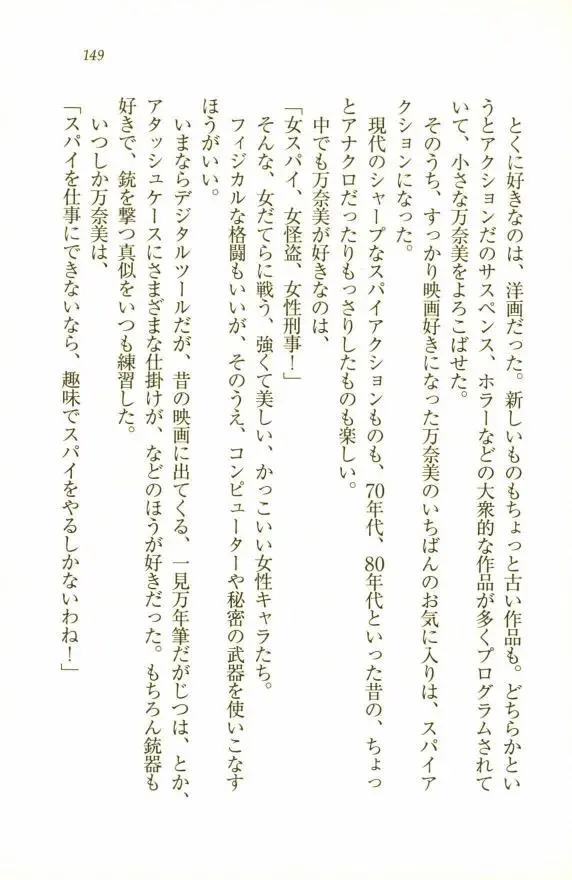 149
とくに好きなのは、洋画だった。新しいものもちょっと古い作品も。どちらかとい
うとアクションだのサスペンス、ホラーなどの大衆的な作品が多くプログラムされて
いて、小さな万奈美をよろこばせた。
そのうち、すっかり映画好きになった万奈美のいちばんのお気に入りは、スパイア
クションになった。
現代のシャープなスパイアクションものも、70年代、80年代といった昔の、ちょっ
とアナクロだったりもっさりしたものも楽しい。
中でも万奈美が好きなのは、
「女スパイ、女怪盗、女性刑事！」
そんな、女だてらに戦う、強くて美しい、かっこいい女性キャラたち。
フィジカルな格闘もいいが、そのうえ、コンピューターや秘密の武器を使いこなす
ほうがいい。
いまならデジタルツールだが、昔の映画に出てくる、一見万年筆だがじつは、とか、
アタッシュケースにさまざまな仕掛けが、などのほうが好きだった。もちろん銃器も
好きで、銃を撃つ真似をいつも練習した。
いつしか万奈美は、
「スパイを仕事にできないなら、趣味でスパイをやるしかないわね！」